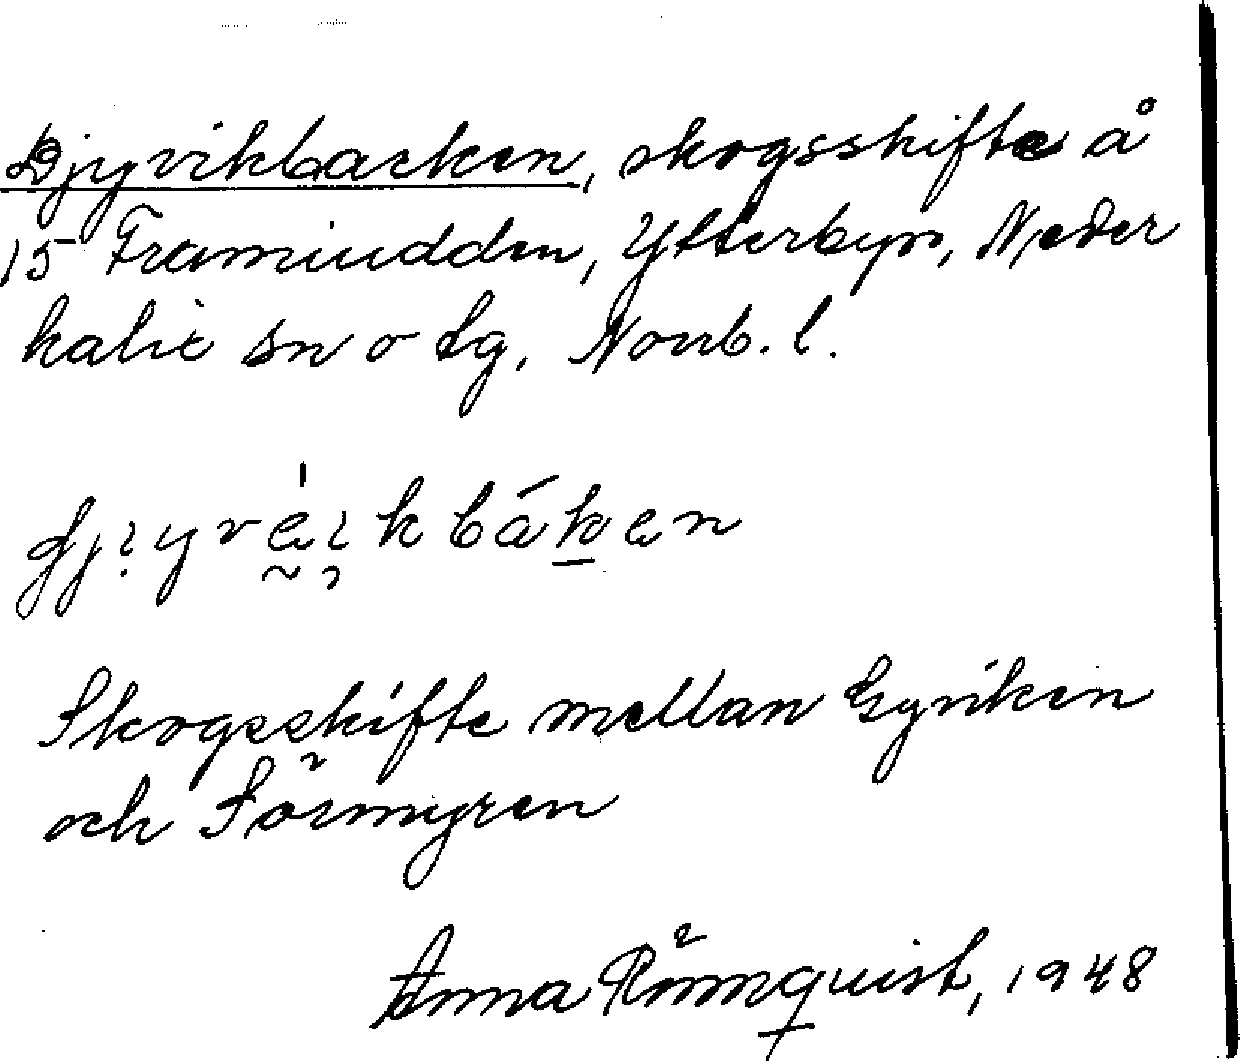 Djyvikbacken, skogsskifte å
15 Framiudden, Ytterbyn, Neder
kalix sn o tg, Norrb. l.
Skogsskifte mellan Gyviken
och Sörmyren
Anna Rönnquist, 1948